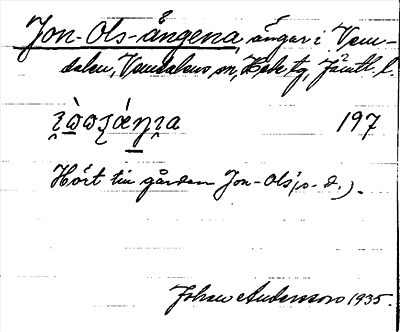 Jon-Ols-ångena, ängar i Vem-
dalen, Vemdalens sn, Hede tg, Jämtl. l.
197
Hört till gården Jon-Ols (s. d.).
Johan Andersson 1935.